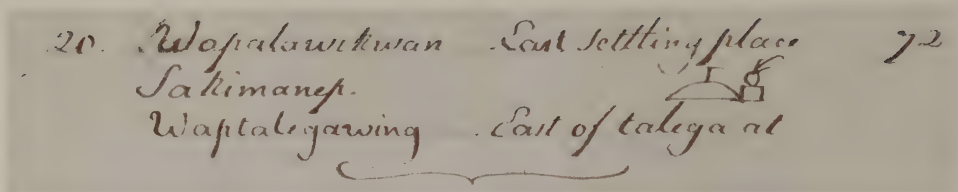 20. Wapalawikwan East settling place 72
Sakimanep.
Waptalegawing East of talega at